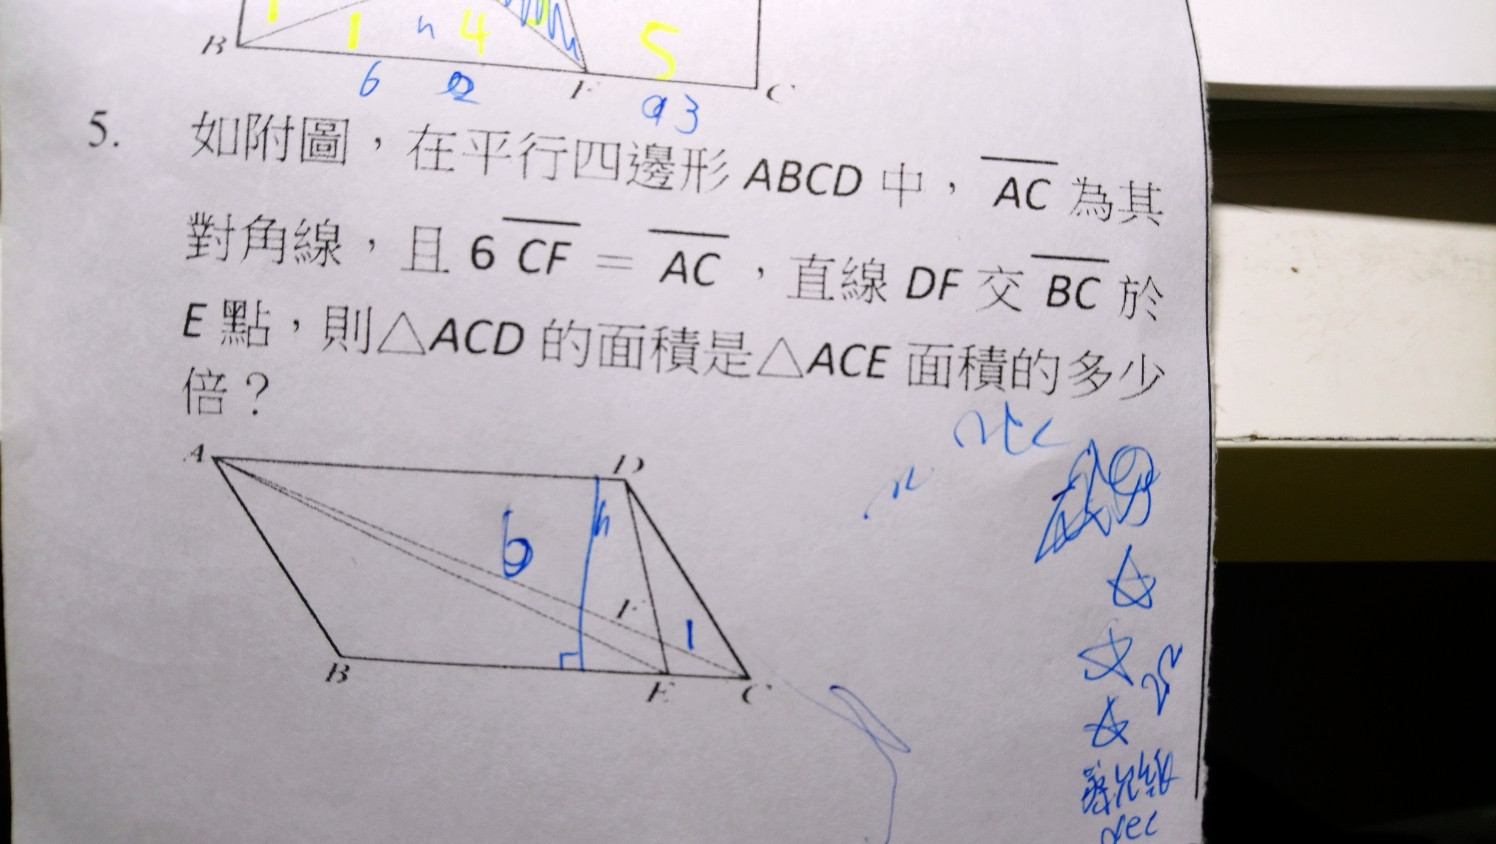 1
B
1
h
4
5
6
2
F
3
C
5. 如附圖，在平行四邊形 ABCD 中， AC 為其
對角線，且 6 CF = AC ，直線 DF 交 BC 於
E 點，則△ACD 的面積是△ACE 面積的多少
倍？
A
D
6
h
F
1
B
E
C